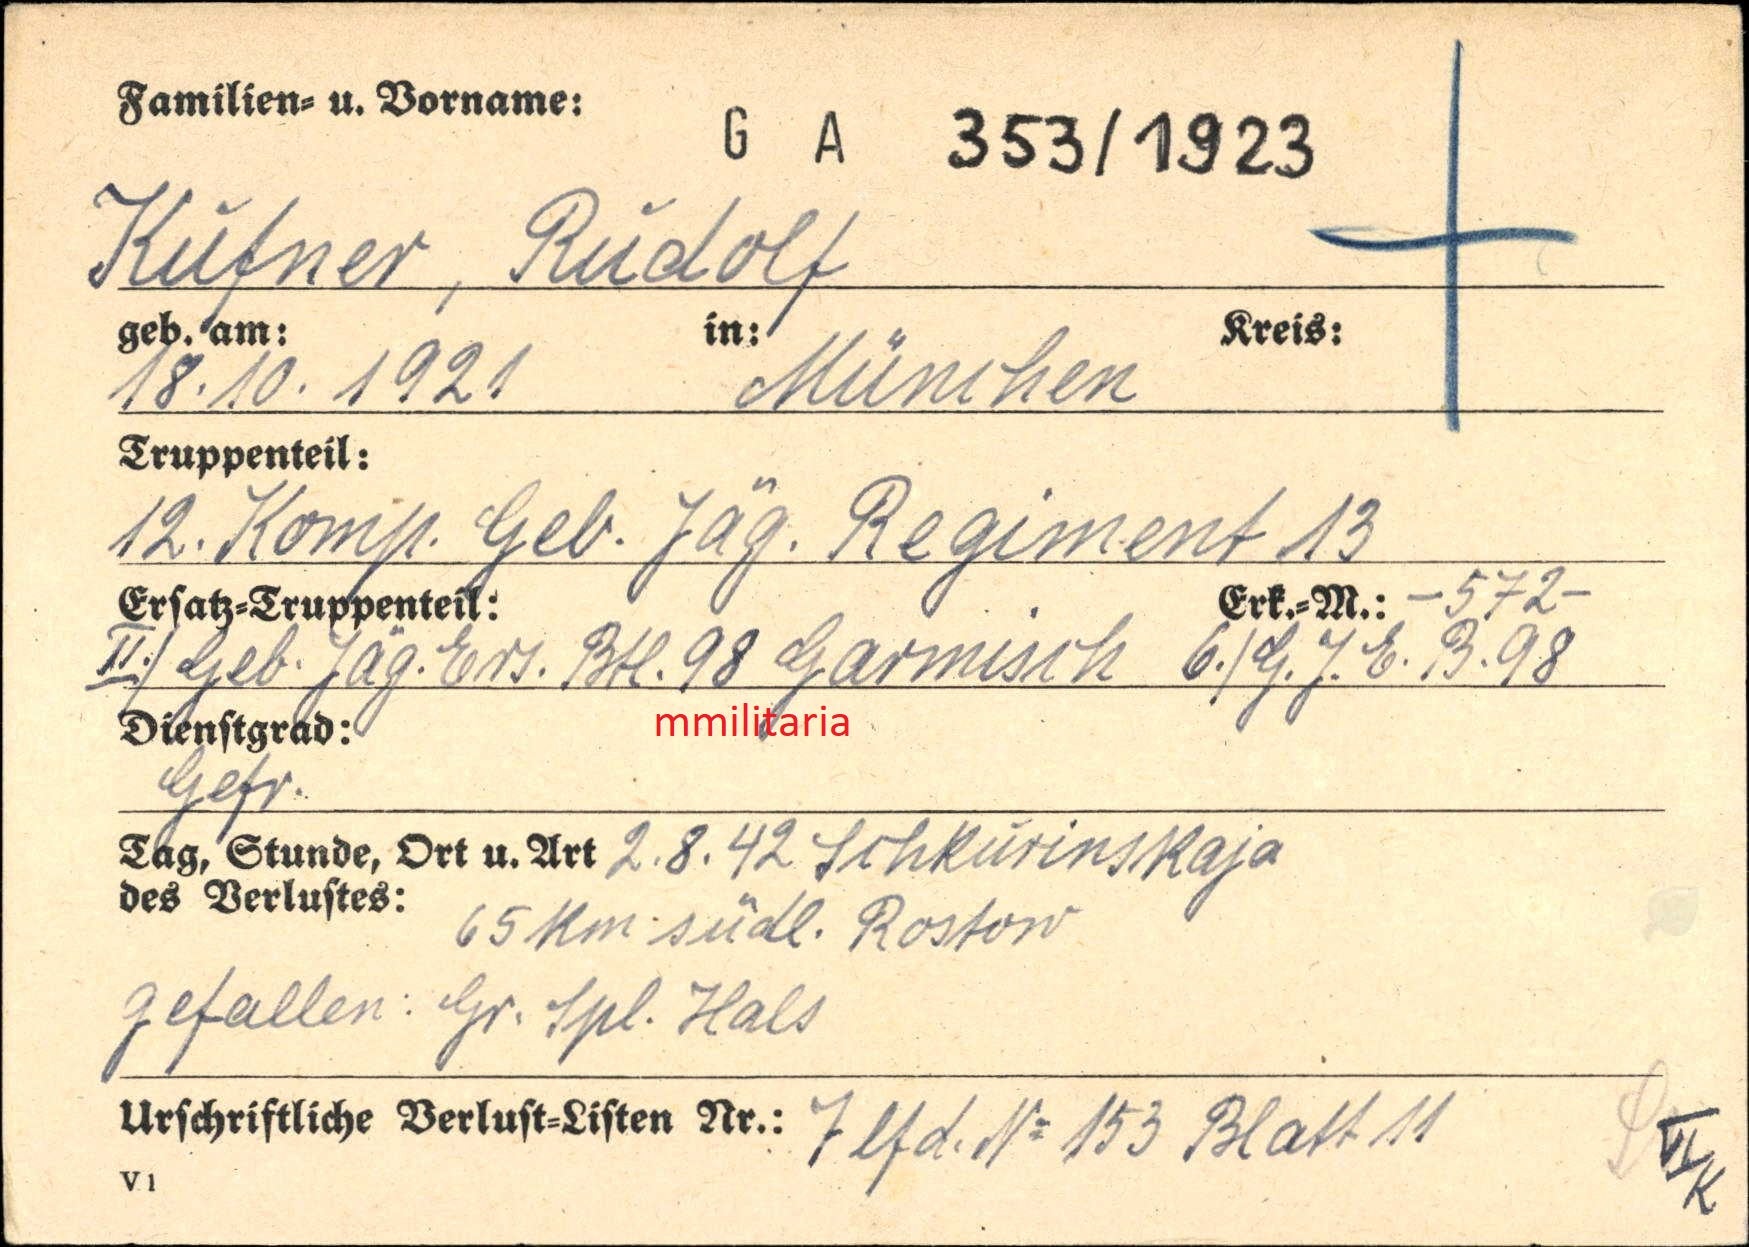 Familien- u. Vorname:
G A 353/1923
Kufner, Rudolf
geb. am: in: Kreis:
18.10.1921 München
Truppenteil:
12. Komp. Geb. Jäg. Regiment 13
Ersatz-Truppenteil: Erk.-M.: -572-
II./ Geb. Jäg. Ers. Btl. 98 Garmisch 6./G.J.E.B.98
mmilitaria
Dienstgrad:
Gefr.
Tag, Stunde, Ort u. Art 2.8.42 Schkurinskaja
des Verlustes: 65 km südl. Rostow
gefallen: Gr. Spl. Hals
Urschriftliche Verlust-Listen Nr.: 7 lfd. No 153 Blatt 11
V 1
VI
K